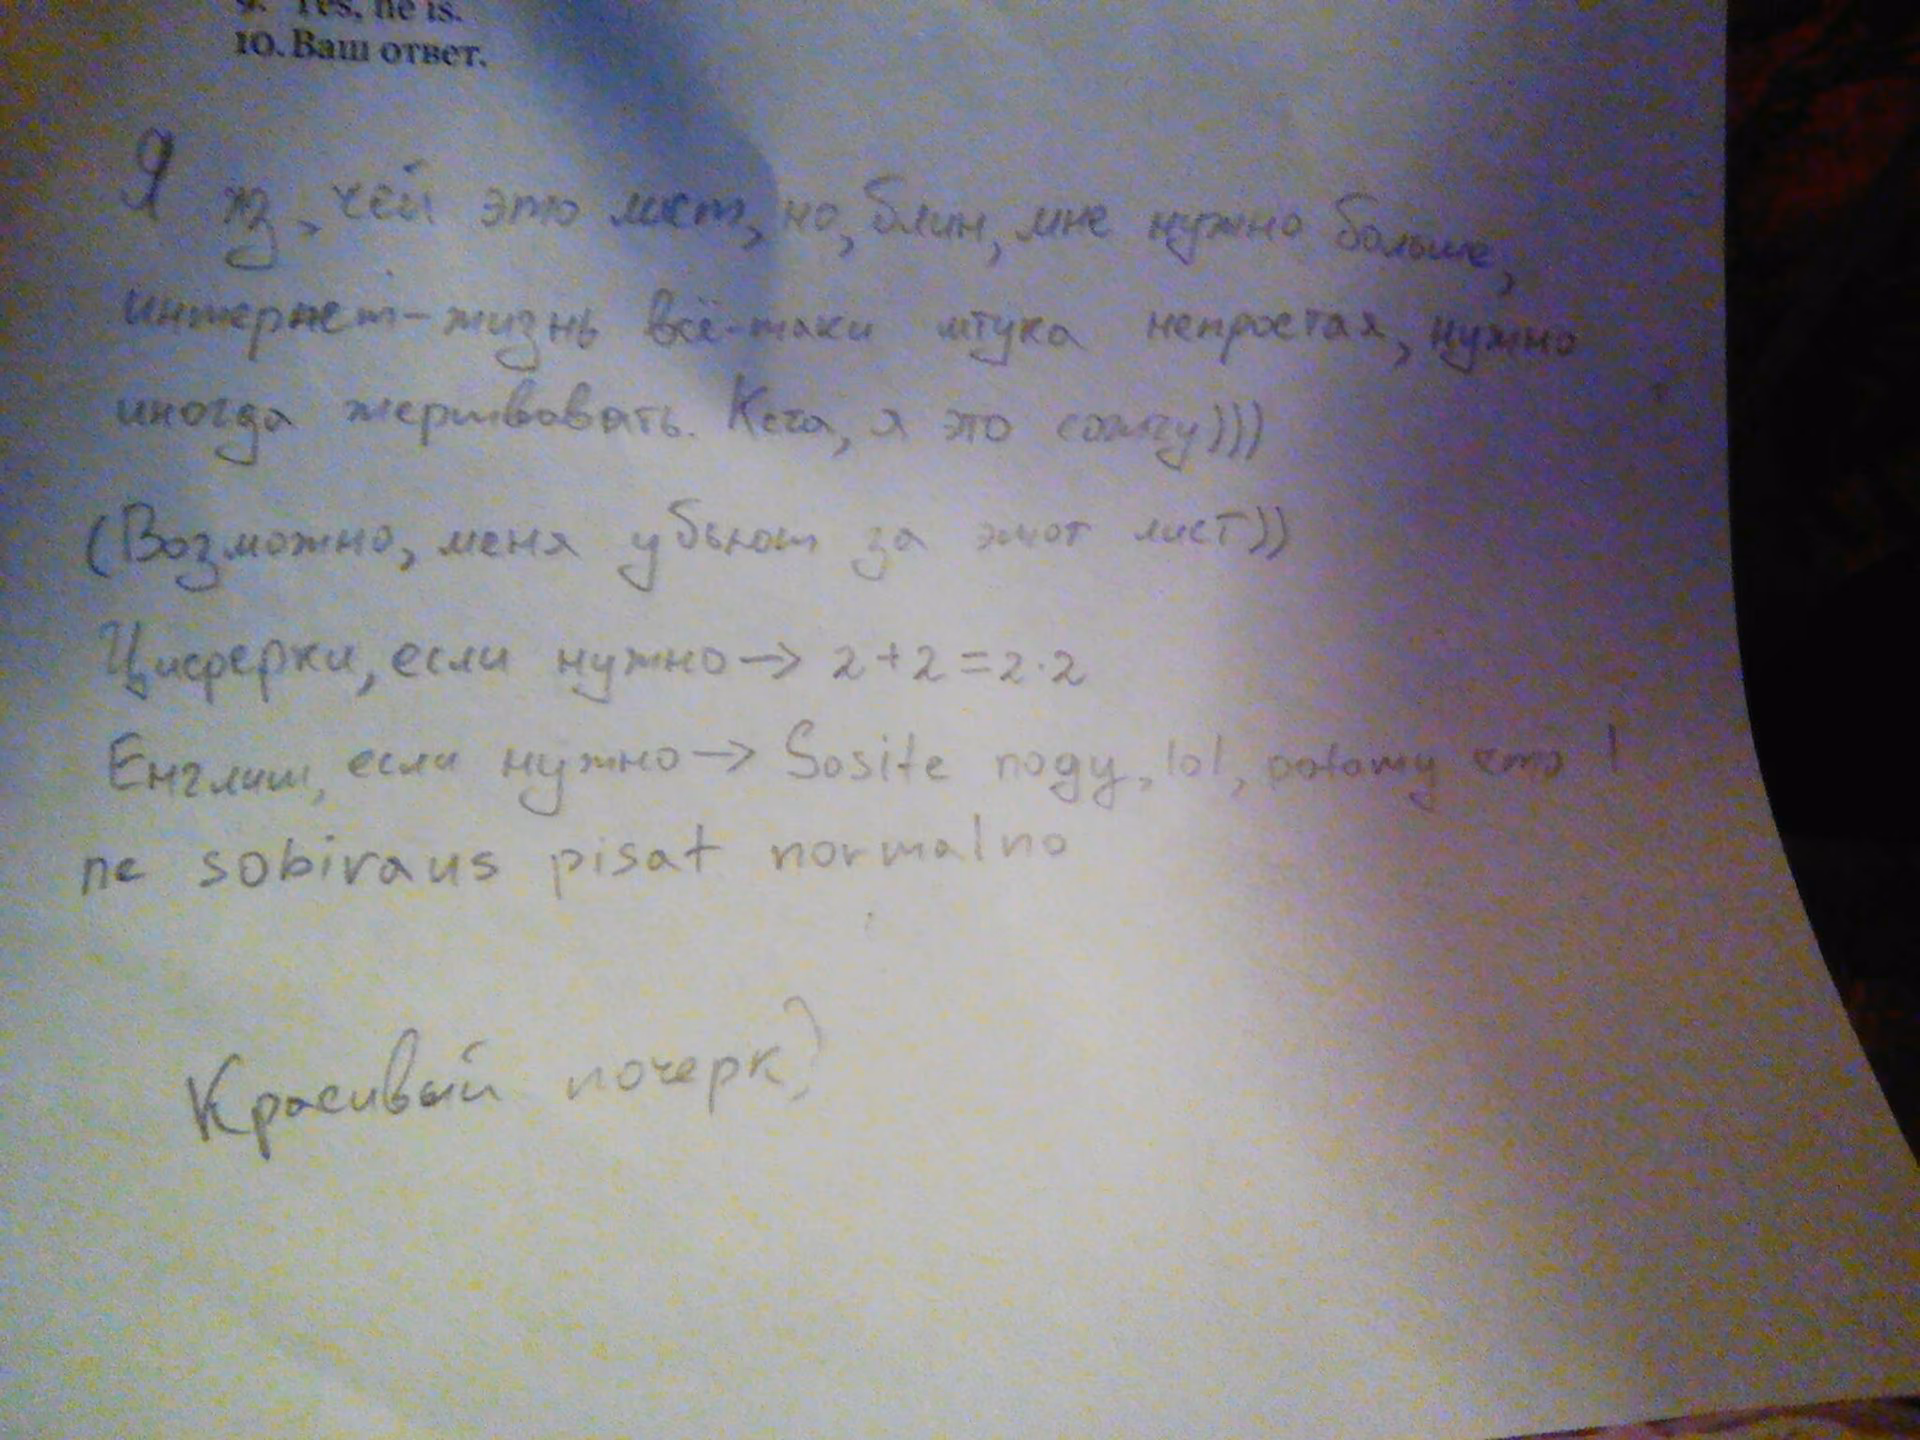 9. Yes, he is.
10. Ваш ответ.
Я хз, чей это лист, но, блин, мне нужно больше,
интернет-жизнь всё-таки штука непростая, нужно
иногда жертвовать. Кста, я это сожгу)))
(Возможно, меня убьют за этот лист))
Циферки, если нужно → 2+2=2·2
Енглиш, если нужно → Sosite nogy, lol, potomy что I
ne sobiraus pisat normalno
Красивый почерк?